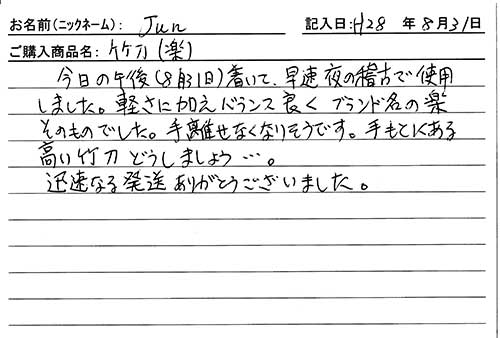 お名前(ニックネーム): Jun 記入日: H28 年 8月31日
ご購入商品名: 竹刀(楽)
今日の午後(8月31日)着いて、早速夜の稽古で使用
しました。軽さに加えバランス良く ブランド名の楽
そのものでした。手離せなくなりそうです。手もとにある
高い竹刀どうしましょう…。
迅速なる発送ありがとうございました。